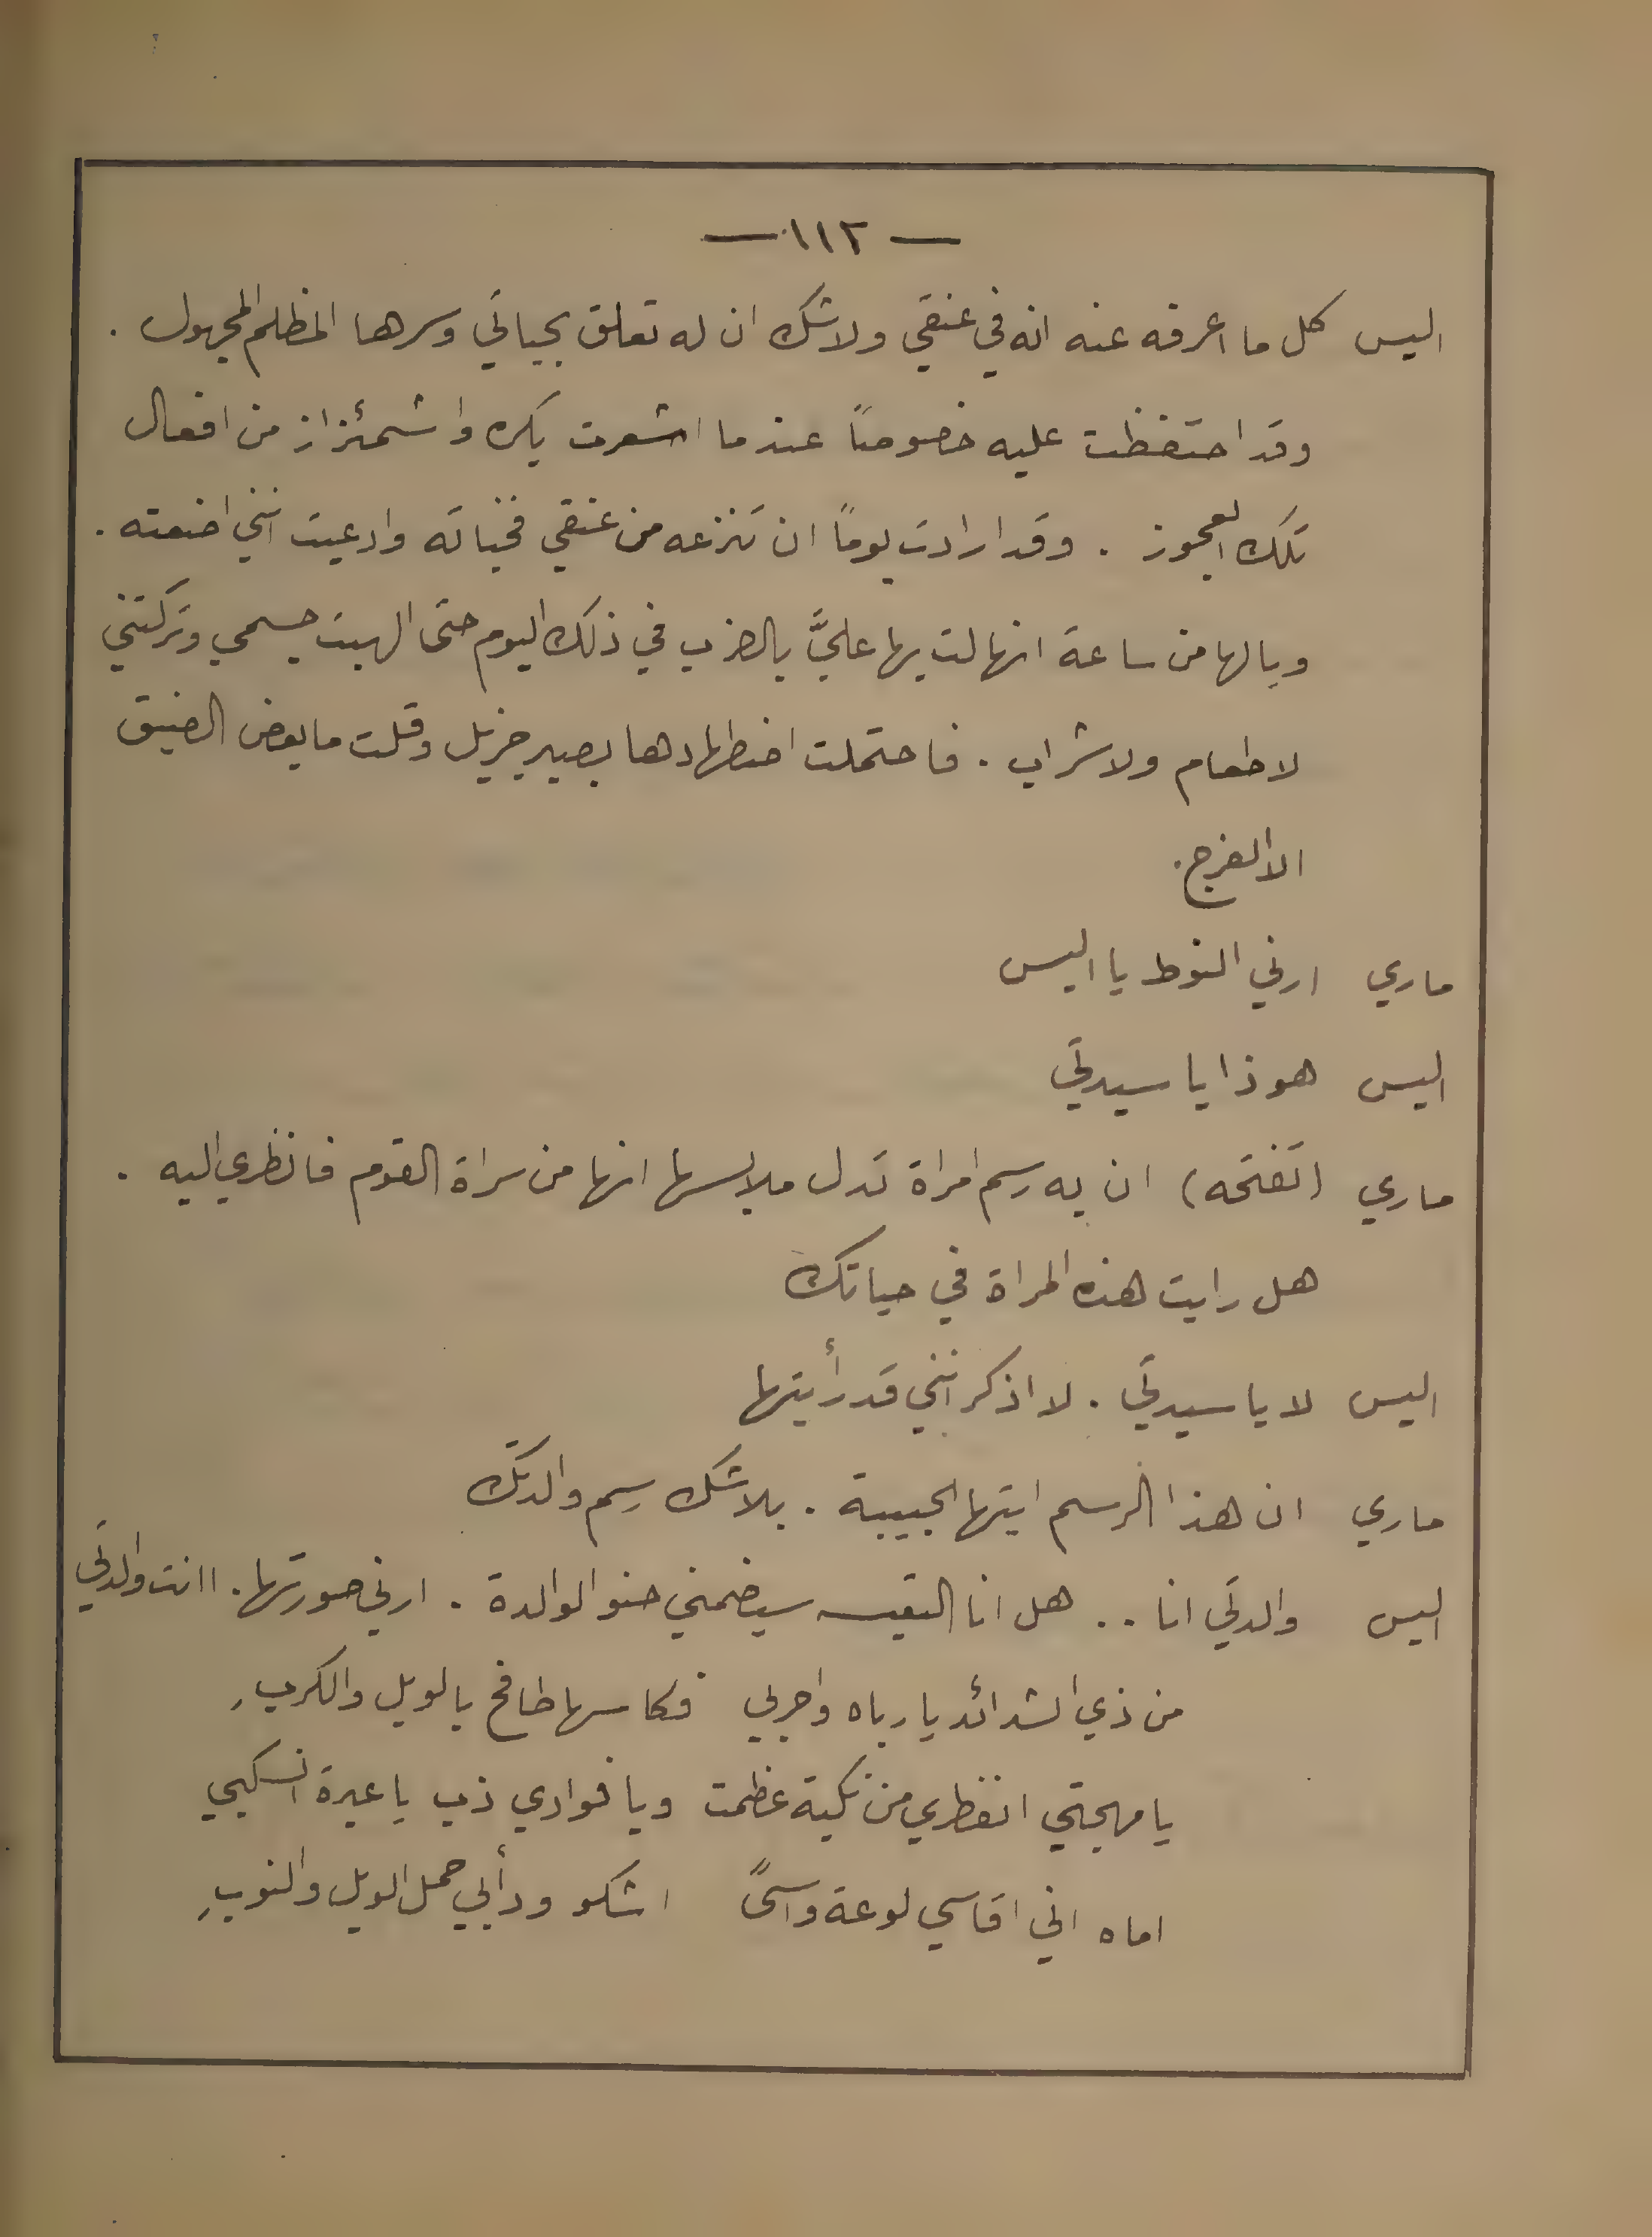 — ١١٢ —
اليس كل ما اعرفه عنه انه في عنقي ولاشك ان له تعلق بحياتي وسرها المظلم المجهول .
وقد احتفظت عليه خصوصاً عندما اشعرت بكره واشمئزاز من افعال
تلك العجوز . وقد ارادت يوماً ان تنزعه من عنقي فخباته وادعيت انني اضعته .
ويالها من ساعة انهالت بها عليَّ بالضرب في ذلك اليوم حتى الهبت جسمي وتركتني
لا طعام ولا شراب . فاحتملت اضطهادها بصبر جزيل وقلت ما بعض الضيق
الا الفرج .
ماري ارني النوط يا اليس
اليس هوذا يا سيدتي
ماري (تفتحه) ان به رسم امراة تدل ملابسها انها من سراة القوم فانظري اليه .
هل رايت هذه المراة في حياتك
اليس لا يا سيدتي . لا اذكر انني قد رأيتها
ماري ان هذا الرسم ايتها الحبيبة . بلا شك رسم والدتك
اليس والدتي انا .. هل انا التعيسه سيضمني حنو الوالدة . ارني صورتها . اانت والدتي
من ذي الشدائد يا رباه واحربي فكاسها طافح بالويل والكربِ
يا مهجتي انفطري من نكبة عظمت ويا فوادي ذب يا عبرة انسكبي
اماه اني اقاسي لوعة واسىً اشكو ودأبي حمل الويل والنوبِ